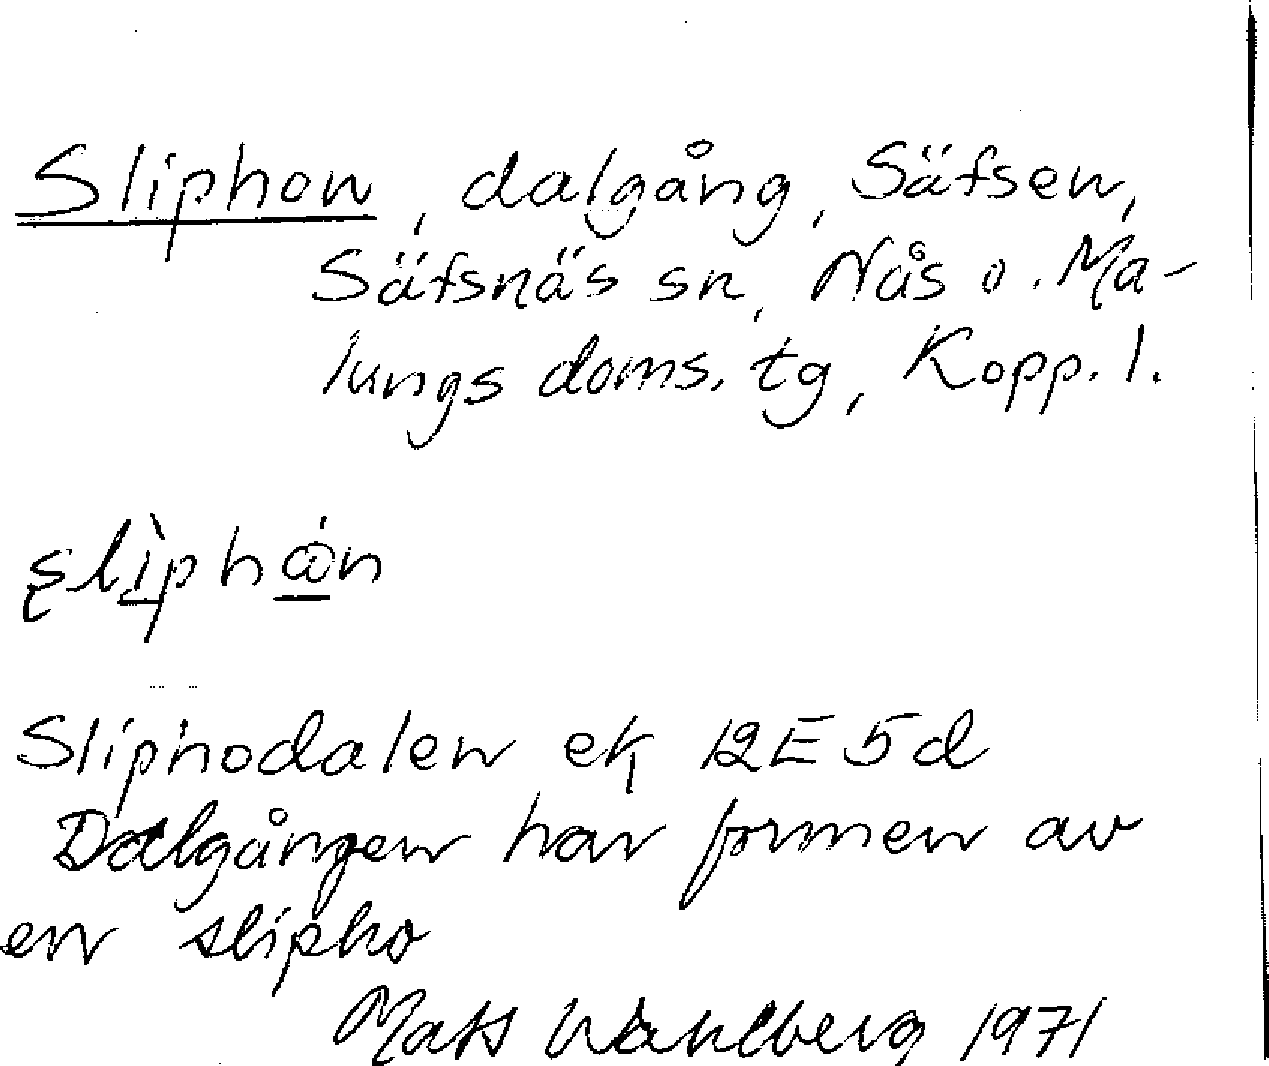 Sliphon, dalgång, Säfsen,
Säfsnäs sn, Nås o. Ma-
lungs doms. tg, Kopp. l.
Sliphodalen ek 12E5d
Dalgången har formen av
en slipho
Mats Wahlberg 1971